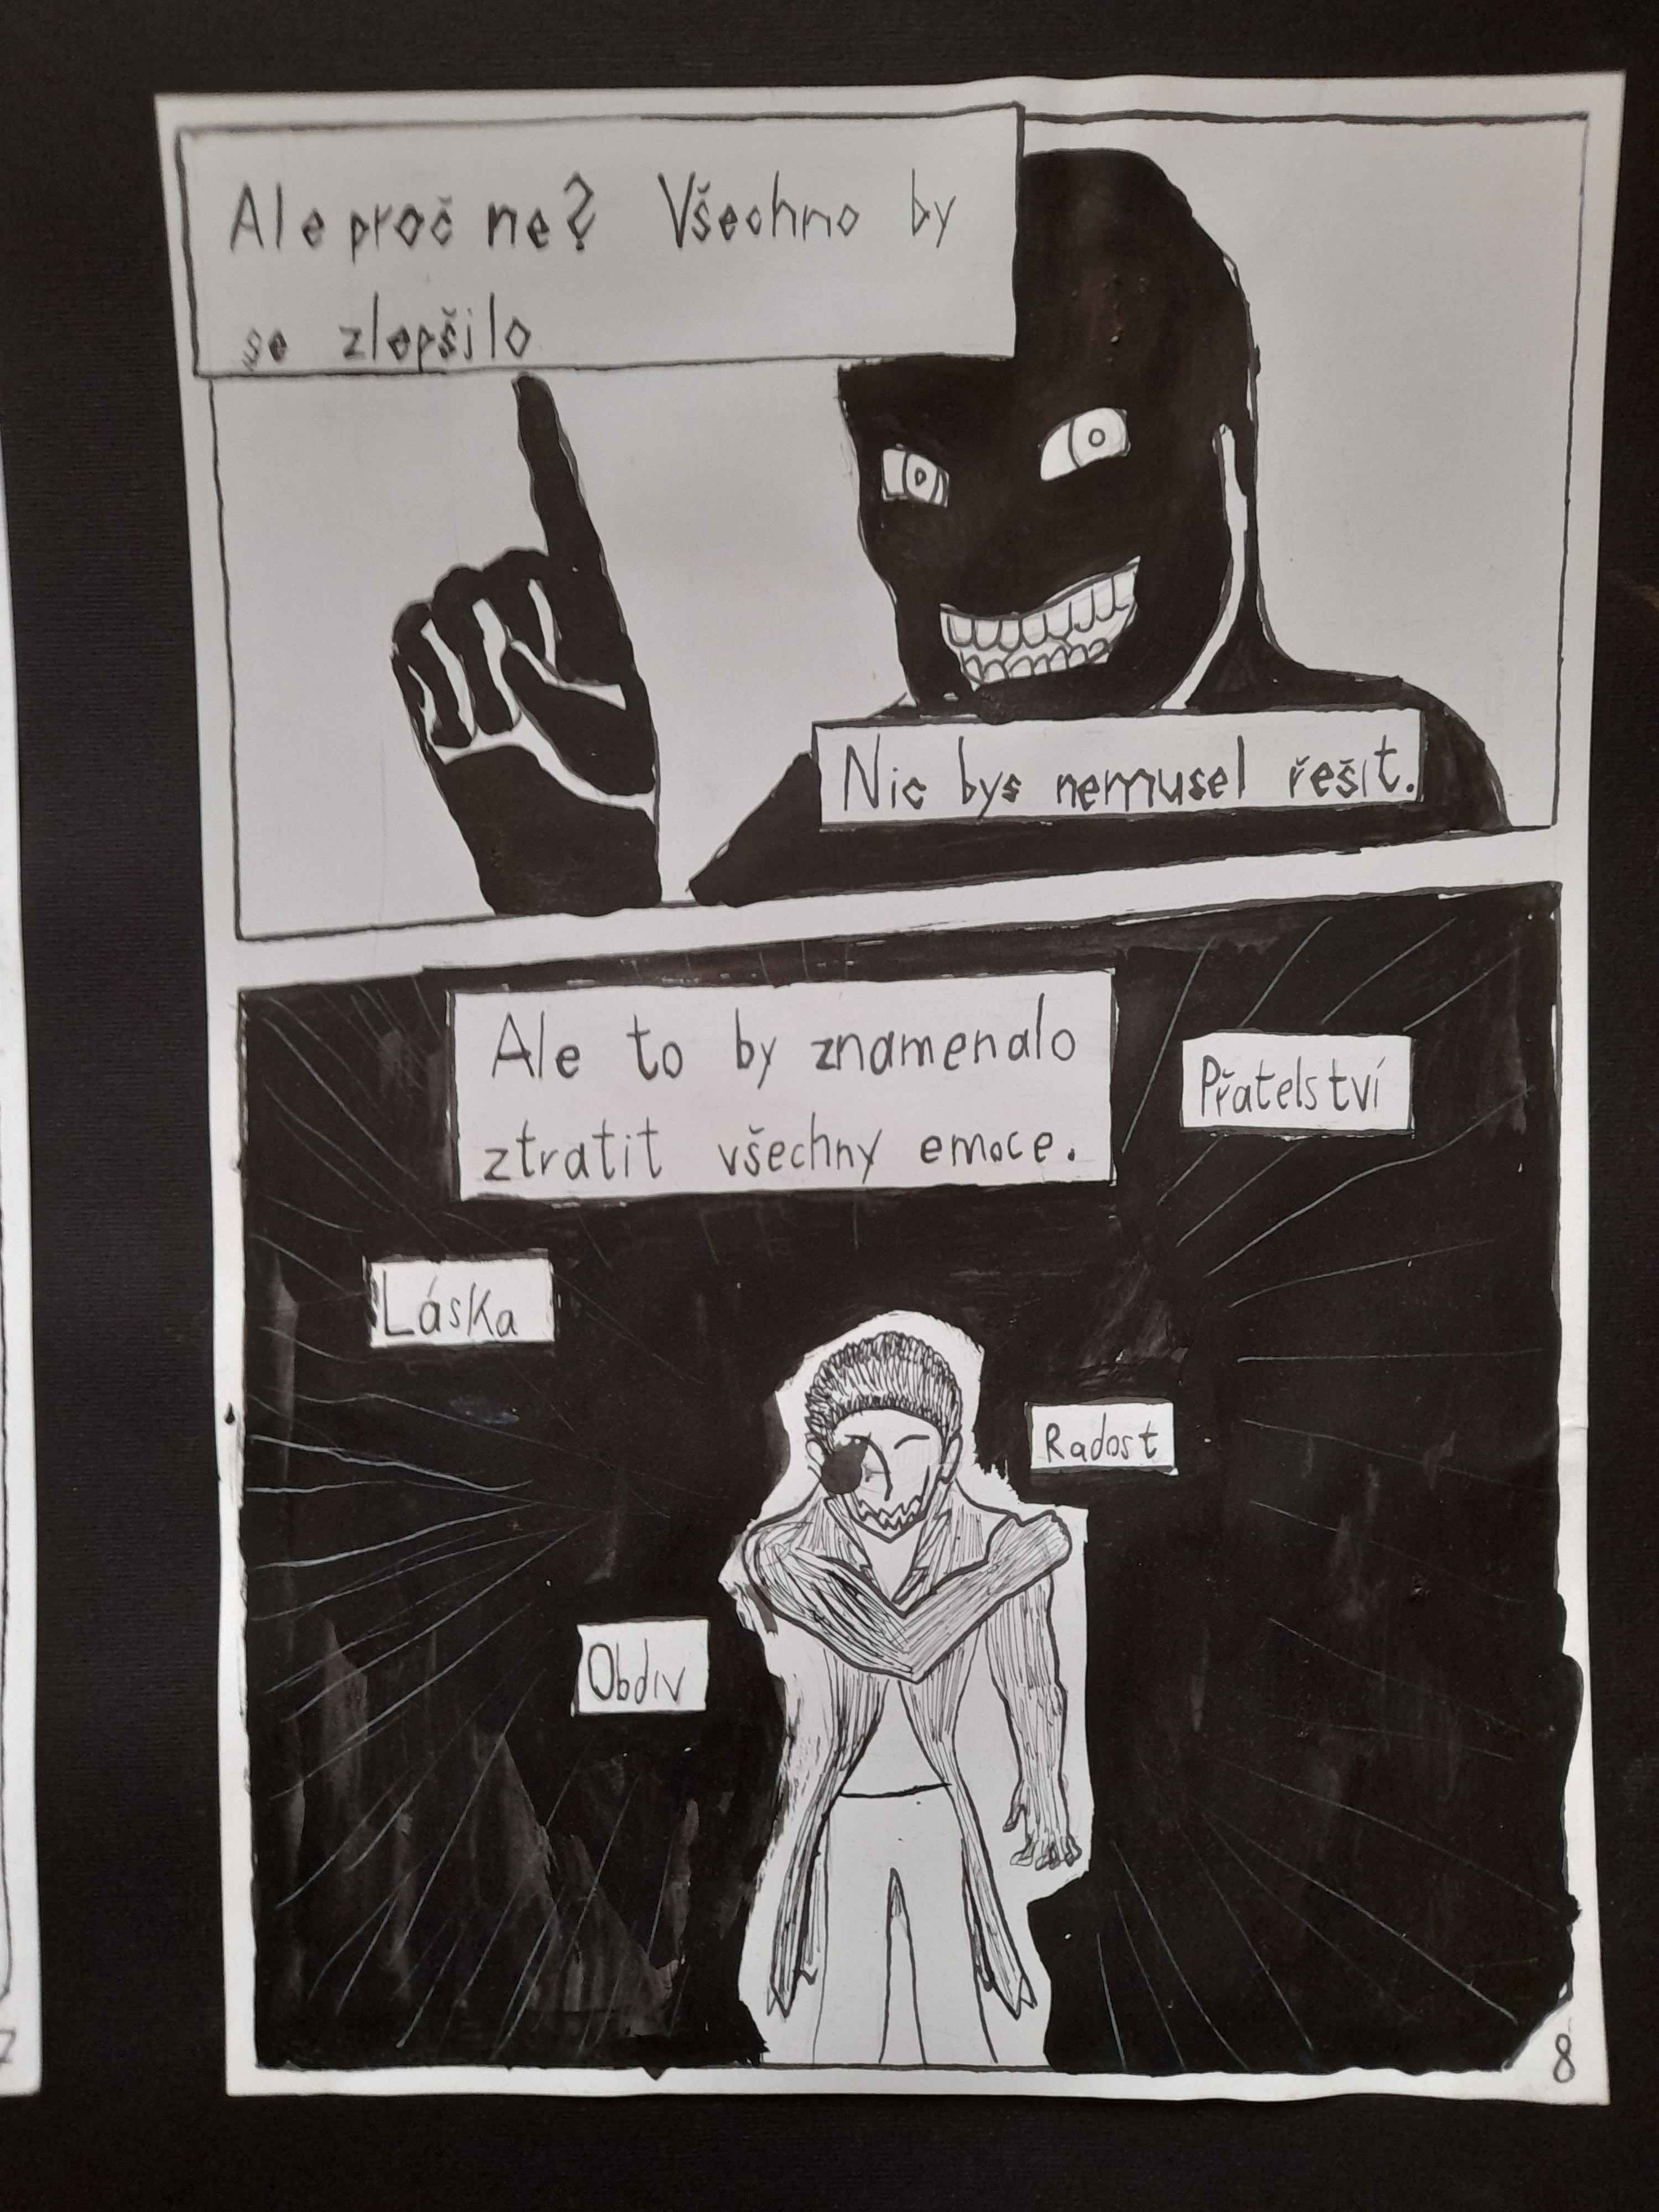 Ale proč ne? Všechno by
se zlepšilo
Nic bys nemusel řešit.
Ale to by znamenalo
ztratit všechny emoce.
Přatelství
Láska
Radost
Obdiv
8
7